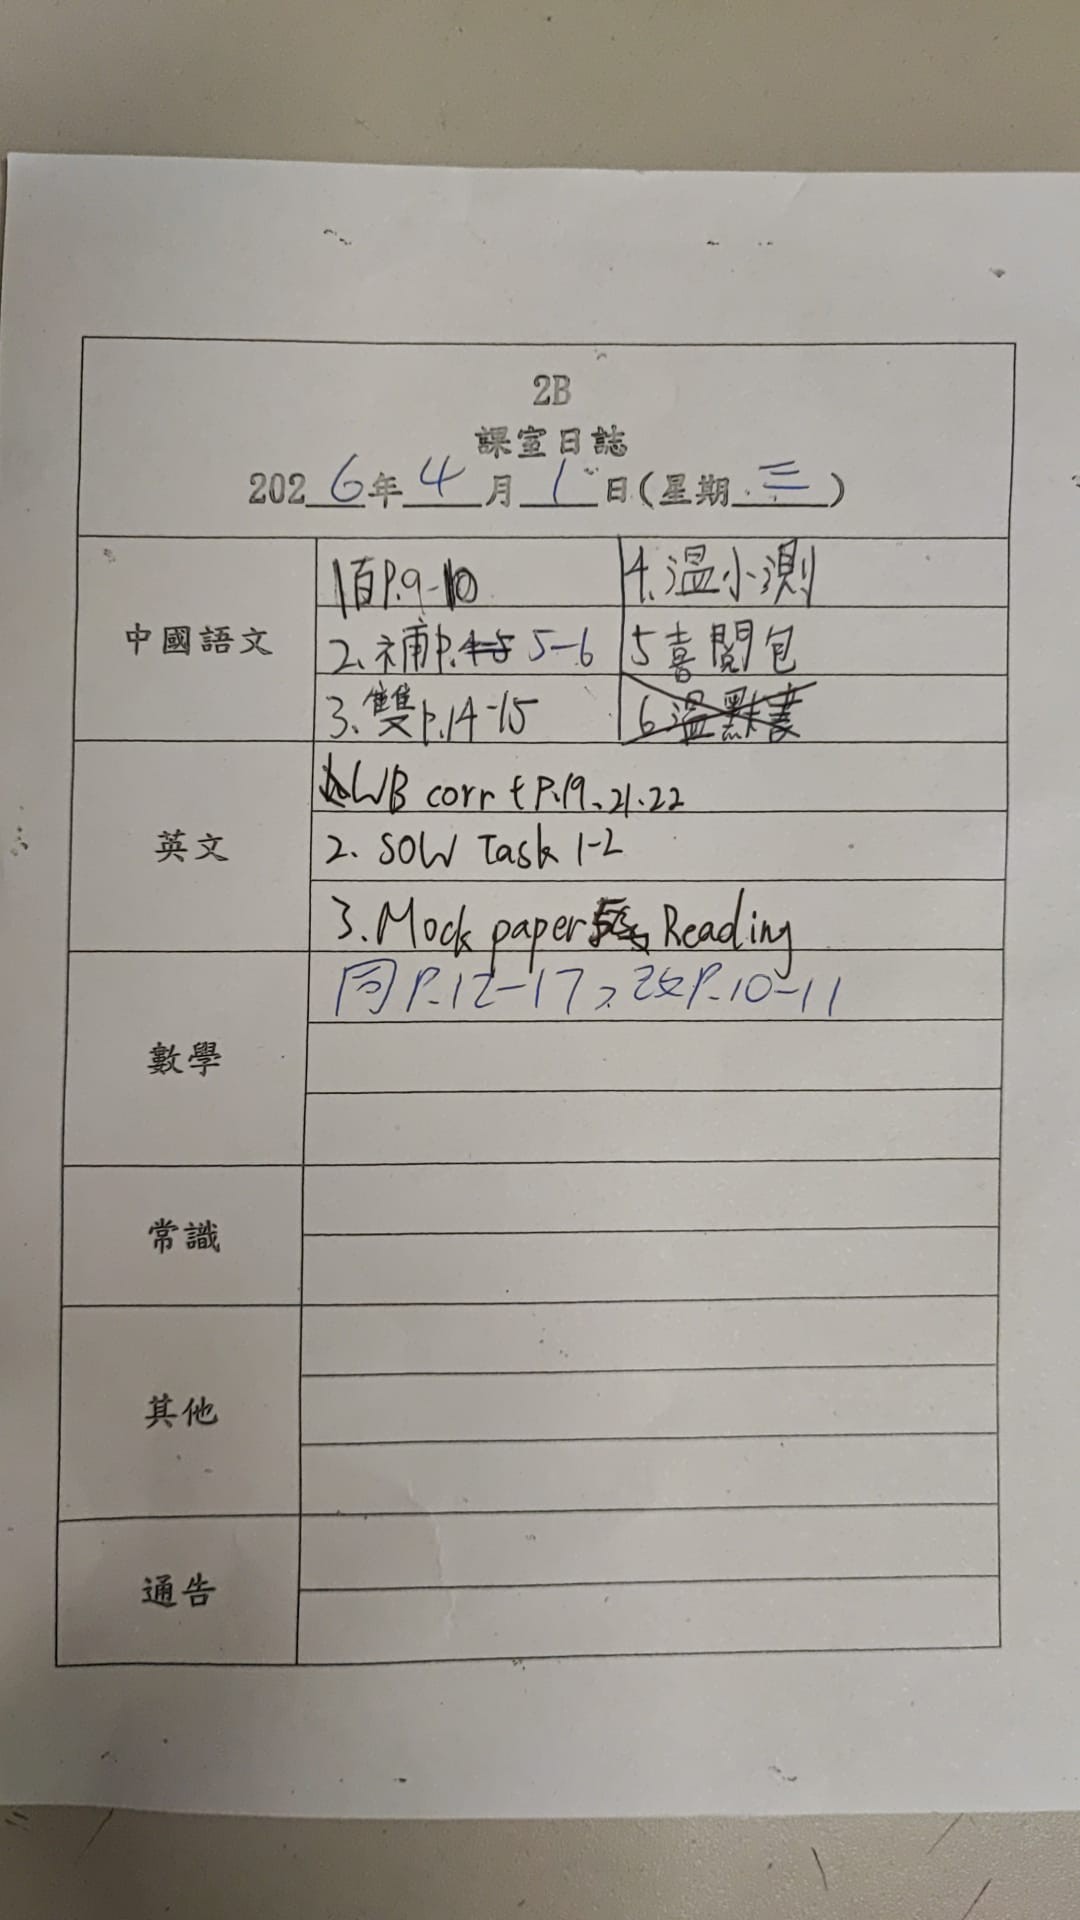 2B
課室日誌
2026年4月1日(星期三)
中國語文
1百P.9-10
2.補P.4-5 5-6
3.雙P.14-15
4.溫小測
5喜閱包
6溫默書
英文
WB corr t P.19.21.22
2. SOW Task 1-2
3. Mock paper Reading
數學
同P.12-17、改P.10-11
常識
其他
通告